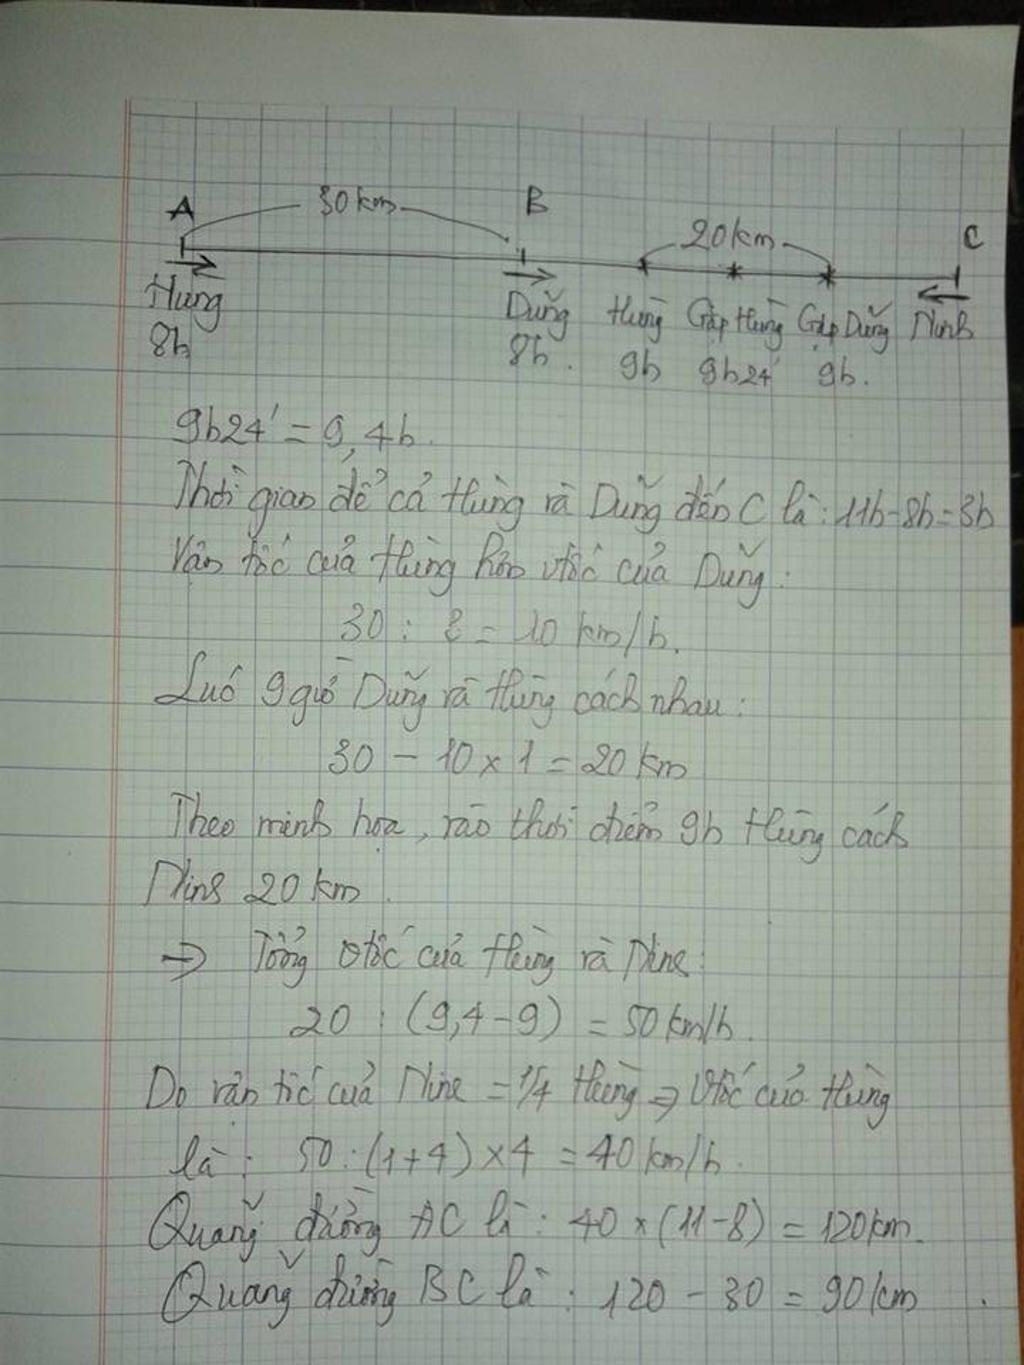 A 30km B 20km C
Hùng Dũng Hùng Gặp Hùng Gặp Dũng Ninh
8h 8h. 9h 9h24' 9h.
9h24' = 9,4h.
Thời gian để cả Hùng và Dũng đến C là: 11h-8h=3h
Vận tốc của Hùng hơn vtốc của Dũng:
30 : 3 = 10 km/h.
Lúc 9 giờ Dũng và Hùng cách nhau:
30 - 10 x 1 = 20 km
Theo minh họa, vào thời điểm 9h Hùng cách
Ninh 20 km.
=> Tổng vtốc của Hùng và Ninh:
20 : (9,4-9) = 50 km/h.
Do vận tốc của Ninh = 1/4 Hùng => Vtốc của Hùng
là: 50:(1+4) x 4 = 40 km/h.
Quãng đường AC là: 40 x (11-8) = 120 km.
Quãng đường BC là: 120 - 30 = 90 km.